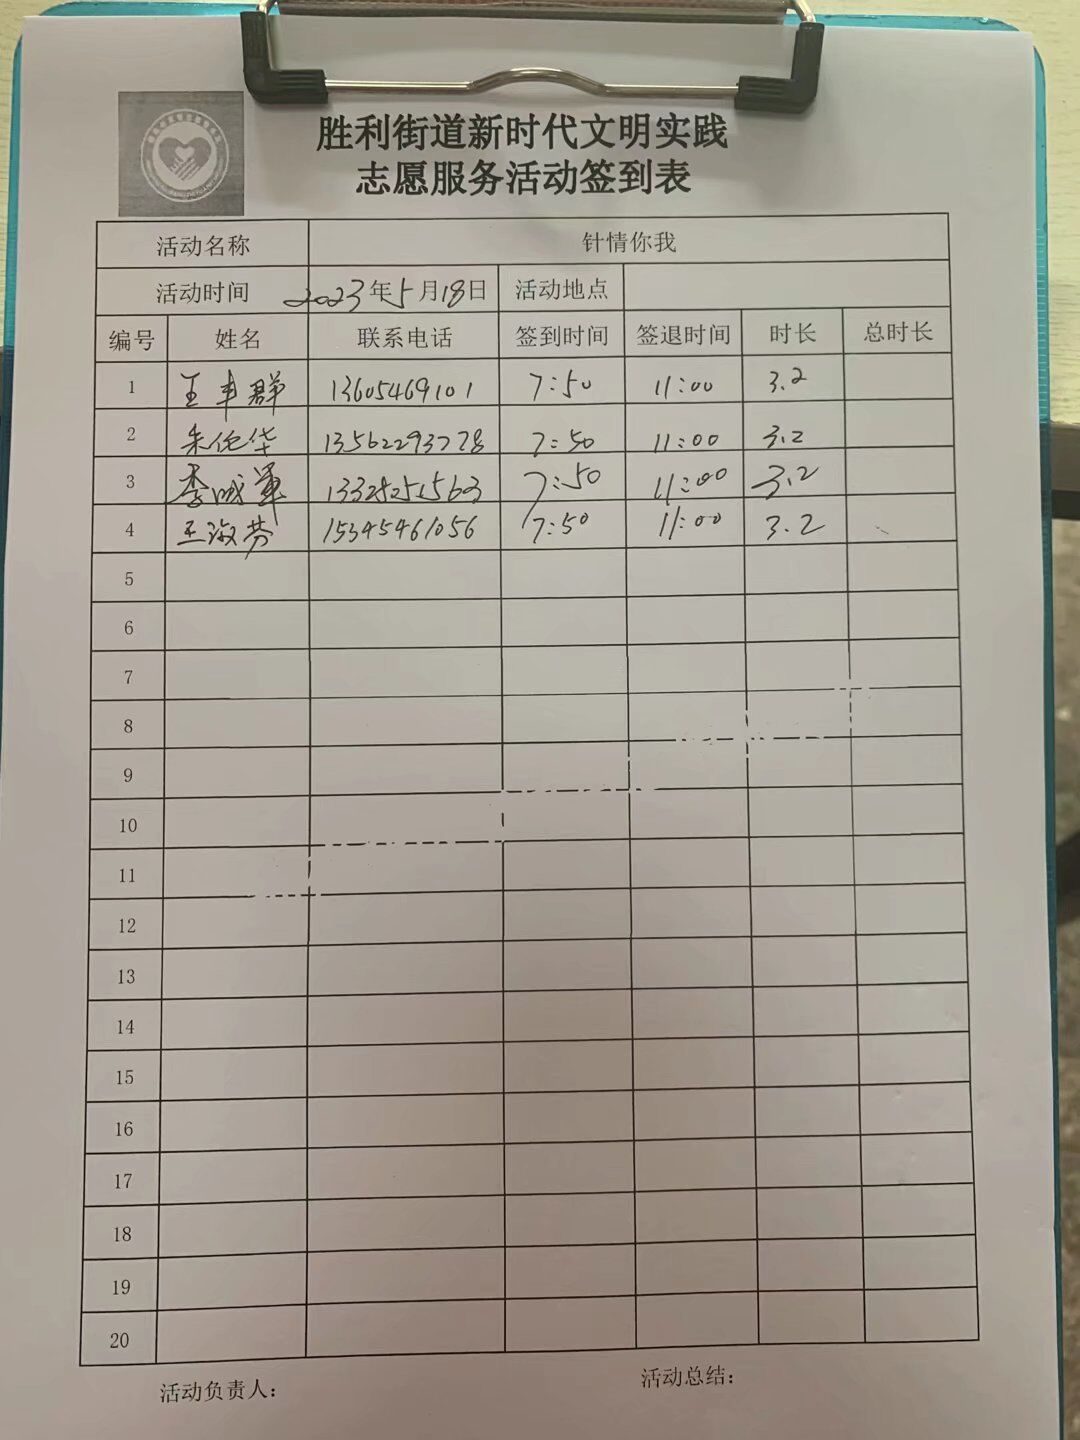 胜利街道新时代文明实践
志愿服务活动签到表
活动名称 针情你我
活动时间 2023年5月18日 活动地点
编号 姓名 联系电话 签到时间 签退时间 时长 总时长
1 王丰群 13605469101 7:50 11:00 3.2
2 朱伦华 13562293778 7:50 11:00 3.2
3 李成军 7:50 11:00 3.2
4 王淑芬 15345461056 7:50 11:00 3.2
5
6
7
8
9
10
11
12
13
14
15
16
17
18
19
20
活动负责人： 活动总结：